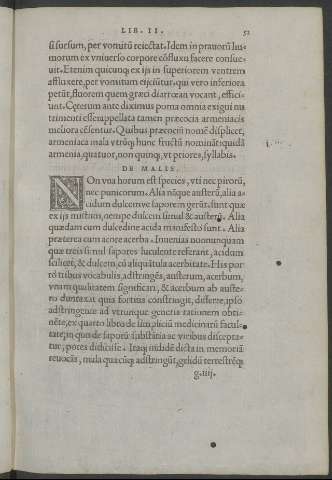 LIB. II. 52
si sursum, per vomitū reiectat. Idem in prauorū hu-
morum ex vniuerso corpore cōfluxu facere consue-
uit. Etenim quicunq; ex ijs in superiorem ventrem
affluxere, per vomitum eijciūtur. qui vero inferiora
petūt, fluorem quem græci diarrœan vocant, effici-
unt. Ceterum ante diximus poma omnia exigui nu
trimenti esse: appellata tamen præcocia armeniacis
meliora cēsentur. Quibus præcociū nomē displicet,
armeniaca mala vtrūq; hunc fructū nominātquidā
armenia, quatuor, non quinq; vt priores, syllabis.
DE MALIS.
NOn vna horum est species, vti nec pirorū,
nec punicorum. Alia nāque austerū, alia a-
cidum dulcemve saporem gerūt. sunt quæ
ex ijs mistum, nempe dulcem simul & austerū. Alia
quædam cum dulcedine acida manifestō sunt. Alia
præterea cum acore acerba. Inuenias nonnunquam
quæ treis simul sapores luculenter referant, acidum
scilicet, & dulcem, cū aliquātula acerbitate. His por
rō tribus vocabulis, adstringēs, austerum, acerbum,
vnam qualitatem significari, & acerbum ab auste-
ro duntaxat quia fortius constringit, differre, ipso
adstringente ad vtrunque generis rationem obti-
nēte, ex quarto libro de simpliciū medicinarū facul-
tate, in quo de saporū substātia ac viribus discepta-
tur, potes didicisse. Itaq; nūc dictā in memoriā
reuocās, mala quæcūq; adstringūt, gelidū terrestrēq;
g.iiij.